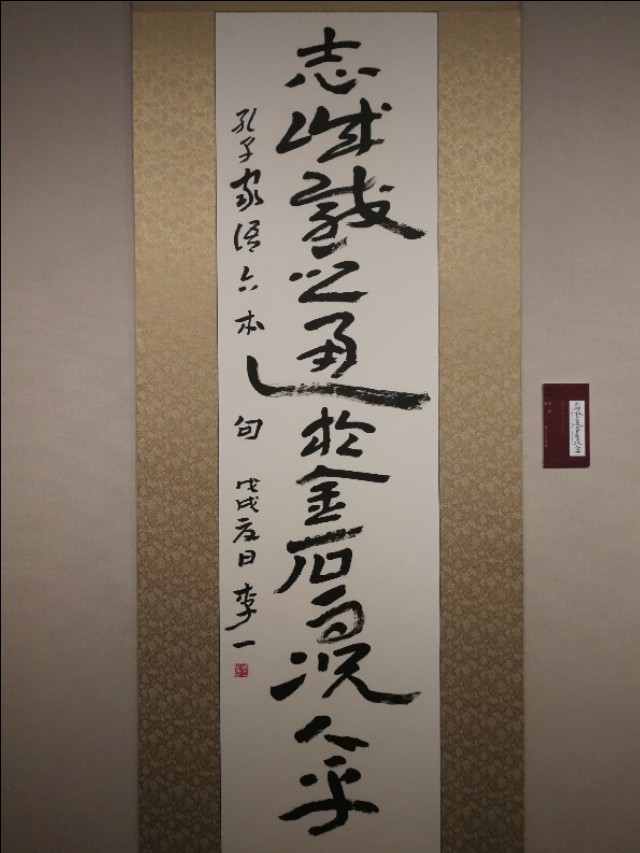 志诚感之通於金石而况人乎
孔子家语六本句 戊戌夏日 李一